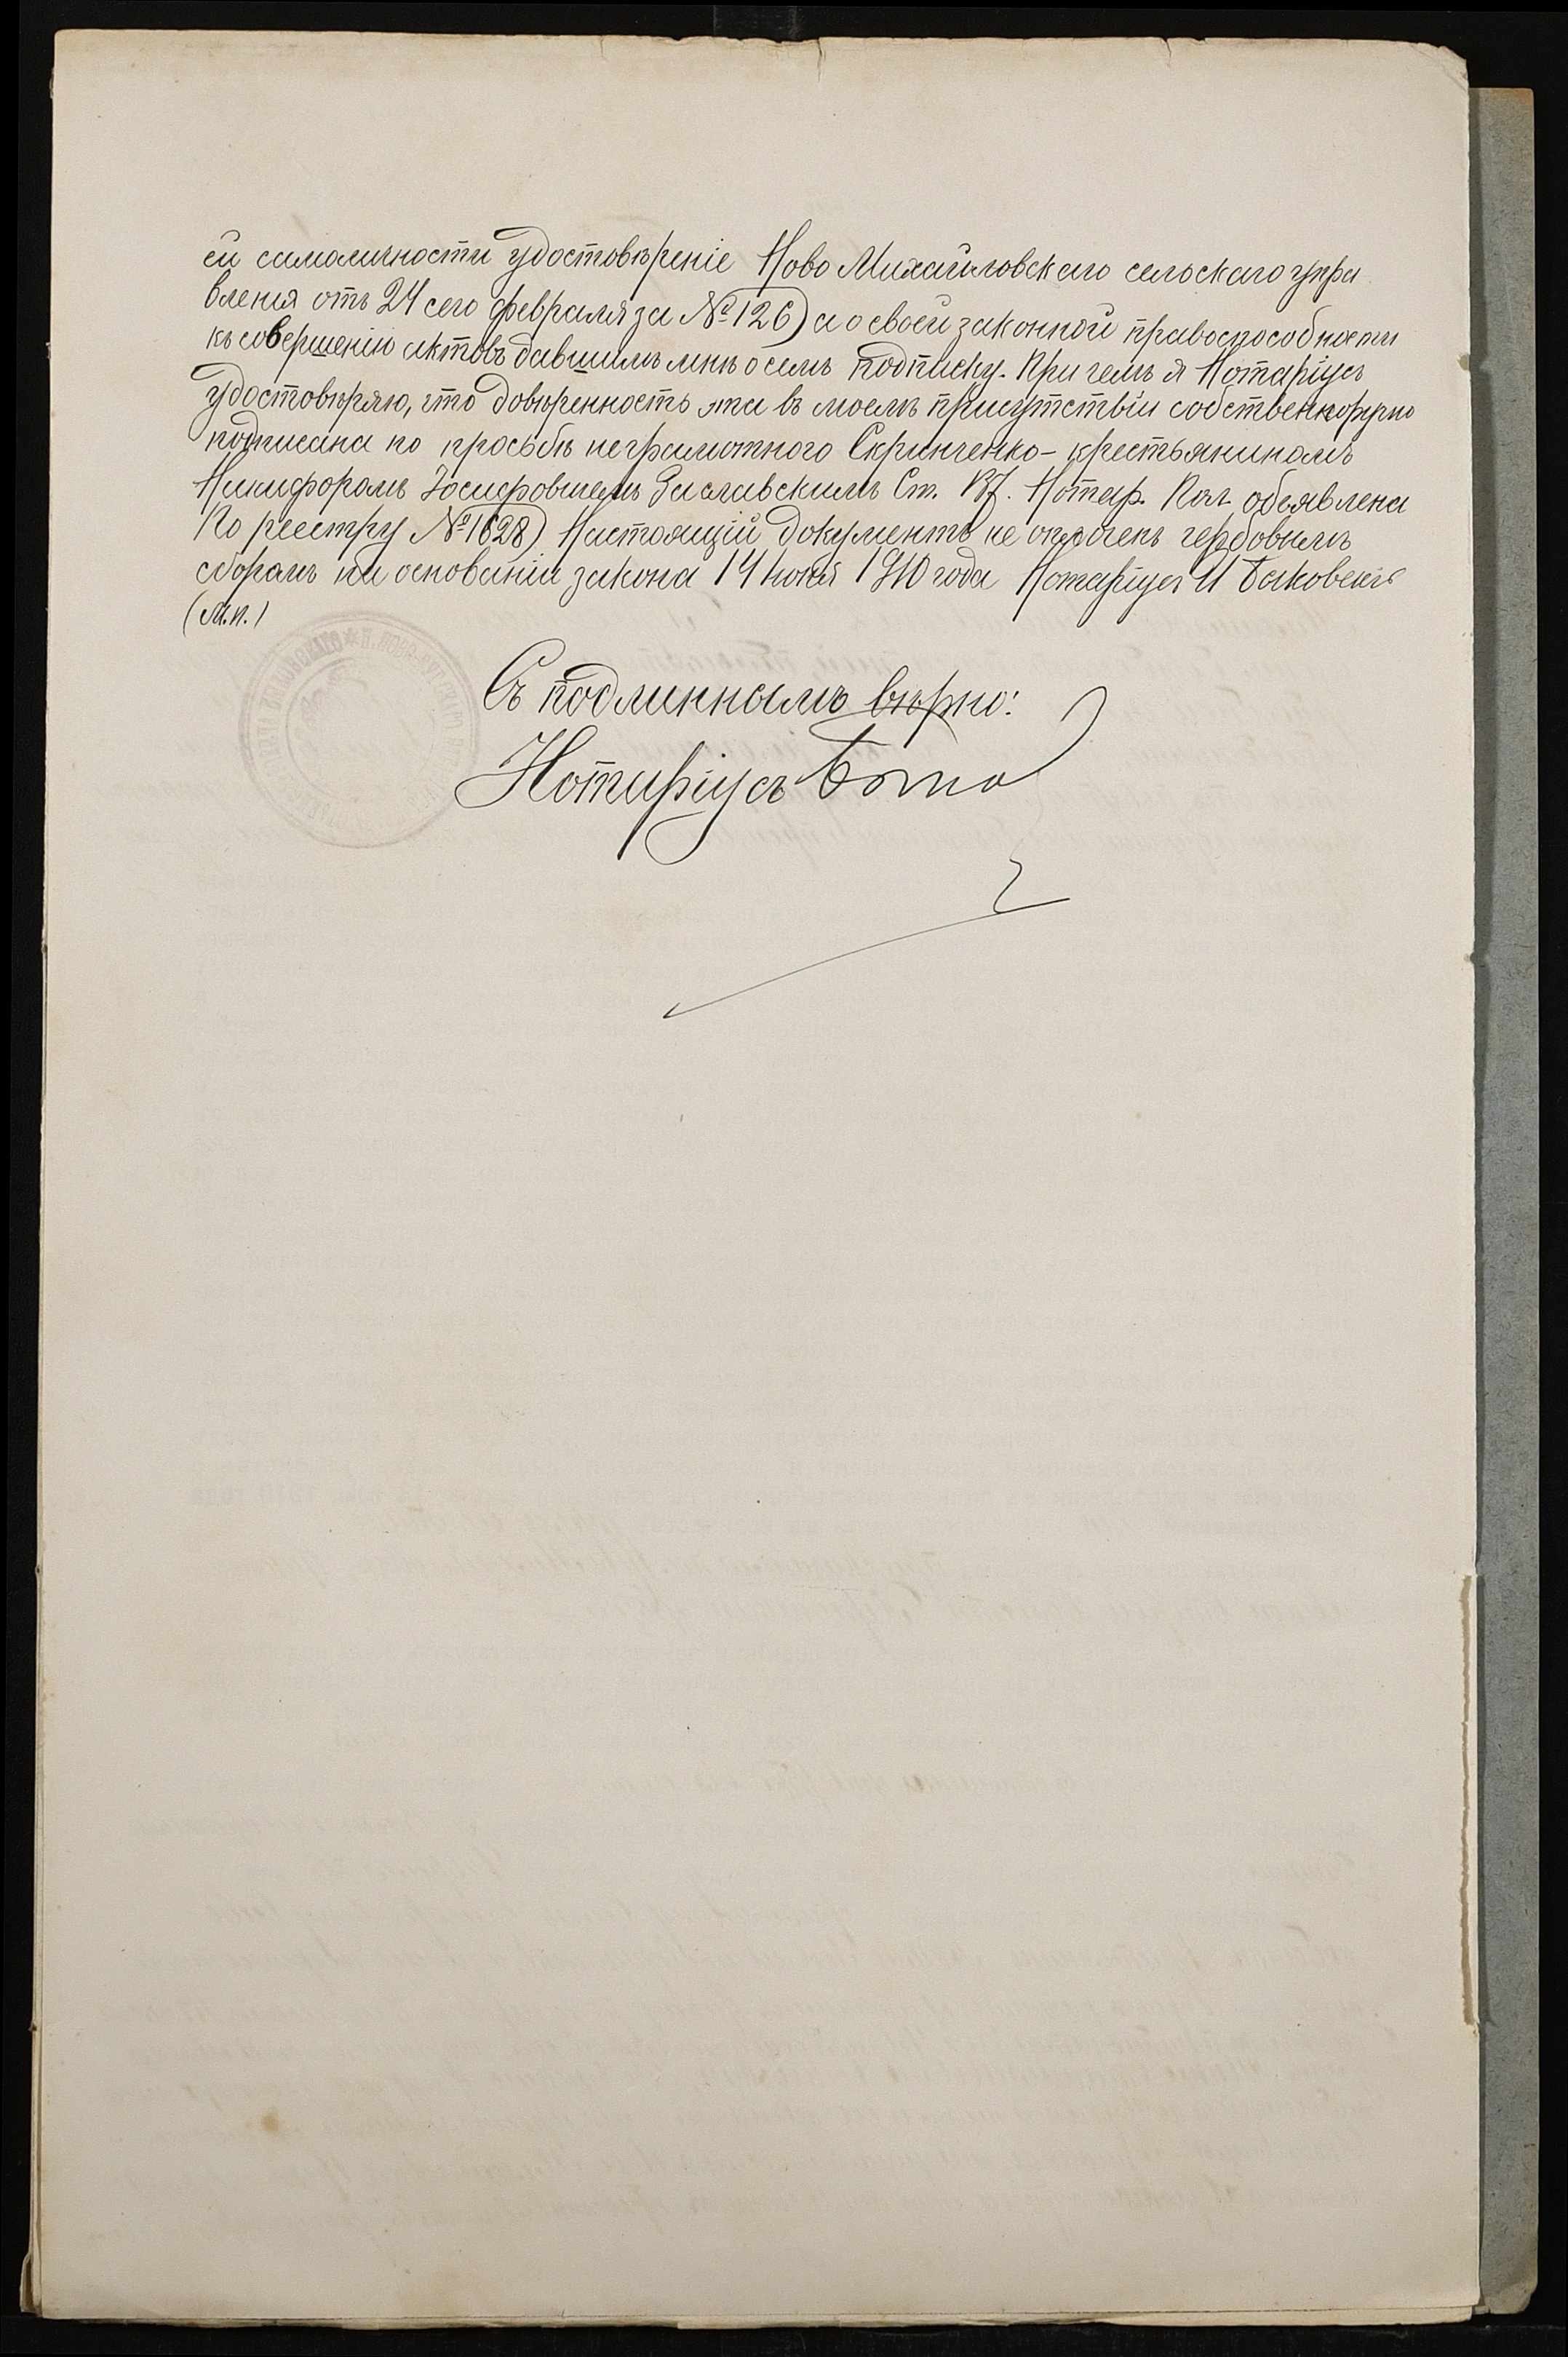 ей самоличности удостовѣреніе Ново Михайловскаго сельскаго упра
вленія отъ 24 сего февраля за № 126) а о своей законной правоспособности
къ совершенію актовъ давшимъ мнѣ о семъ подписку. При чемъ я Нотаріусъ
удостовѣряю, что довѣренность эта въ моемъ присутствіи собственноручно
подписана по просьбѣ неграмотного Скринченко - крестьяниномъ
Никифоромъ Іосифовичемъ Заславскимъ Ст. 137. Нотар. Пол. объявлена
По реестру № 1628) Настоящій документъ не оплоченъ гербовымъ
сборомъ на основаніи закона 14 іюня 1910 года Нотаріусъ И
(М.п.)
Съ подлиннымъ вѣрно:
Нотаріусъ